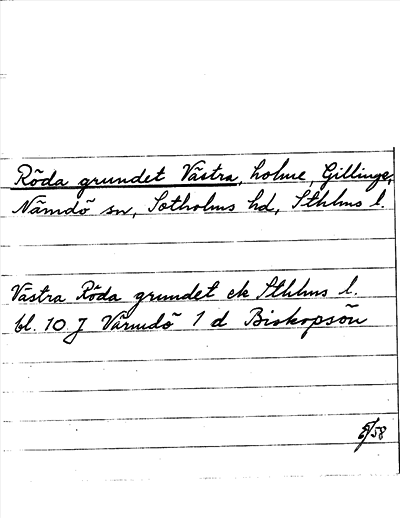 Röda grundet Västra, holme, Gillinge,
Nämdö sn, Sotholms hd, Sthlms l.
Västra Röda grundet ek Sthlms l.
bl. 10 J Värmdö 1 d Biskopsön
/58